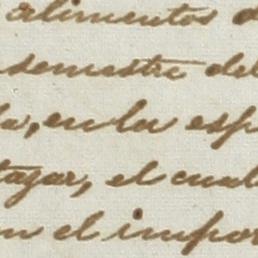 alimentos d
semestre del
la, en la esp
tagar, el cual
n el impor